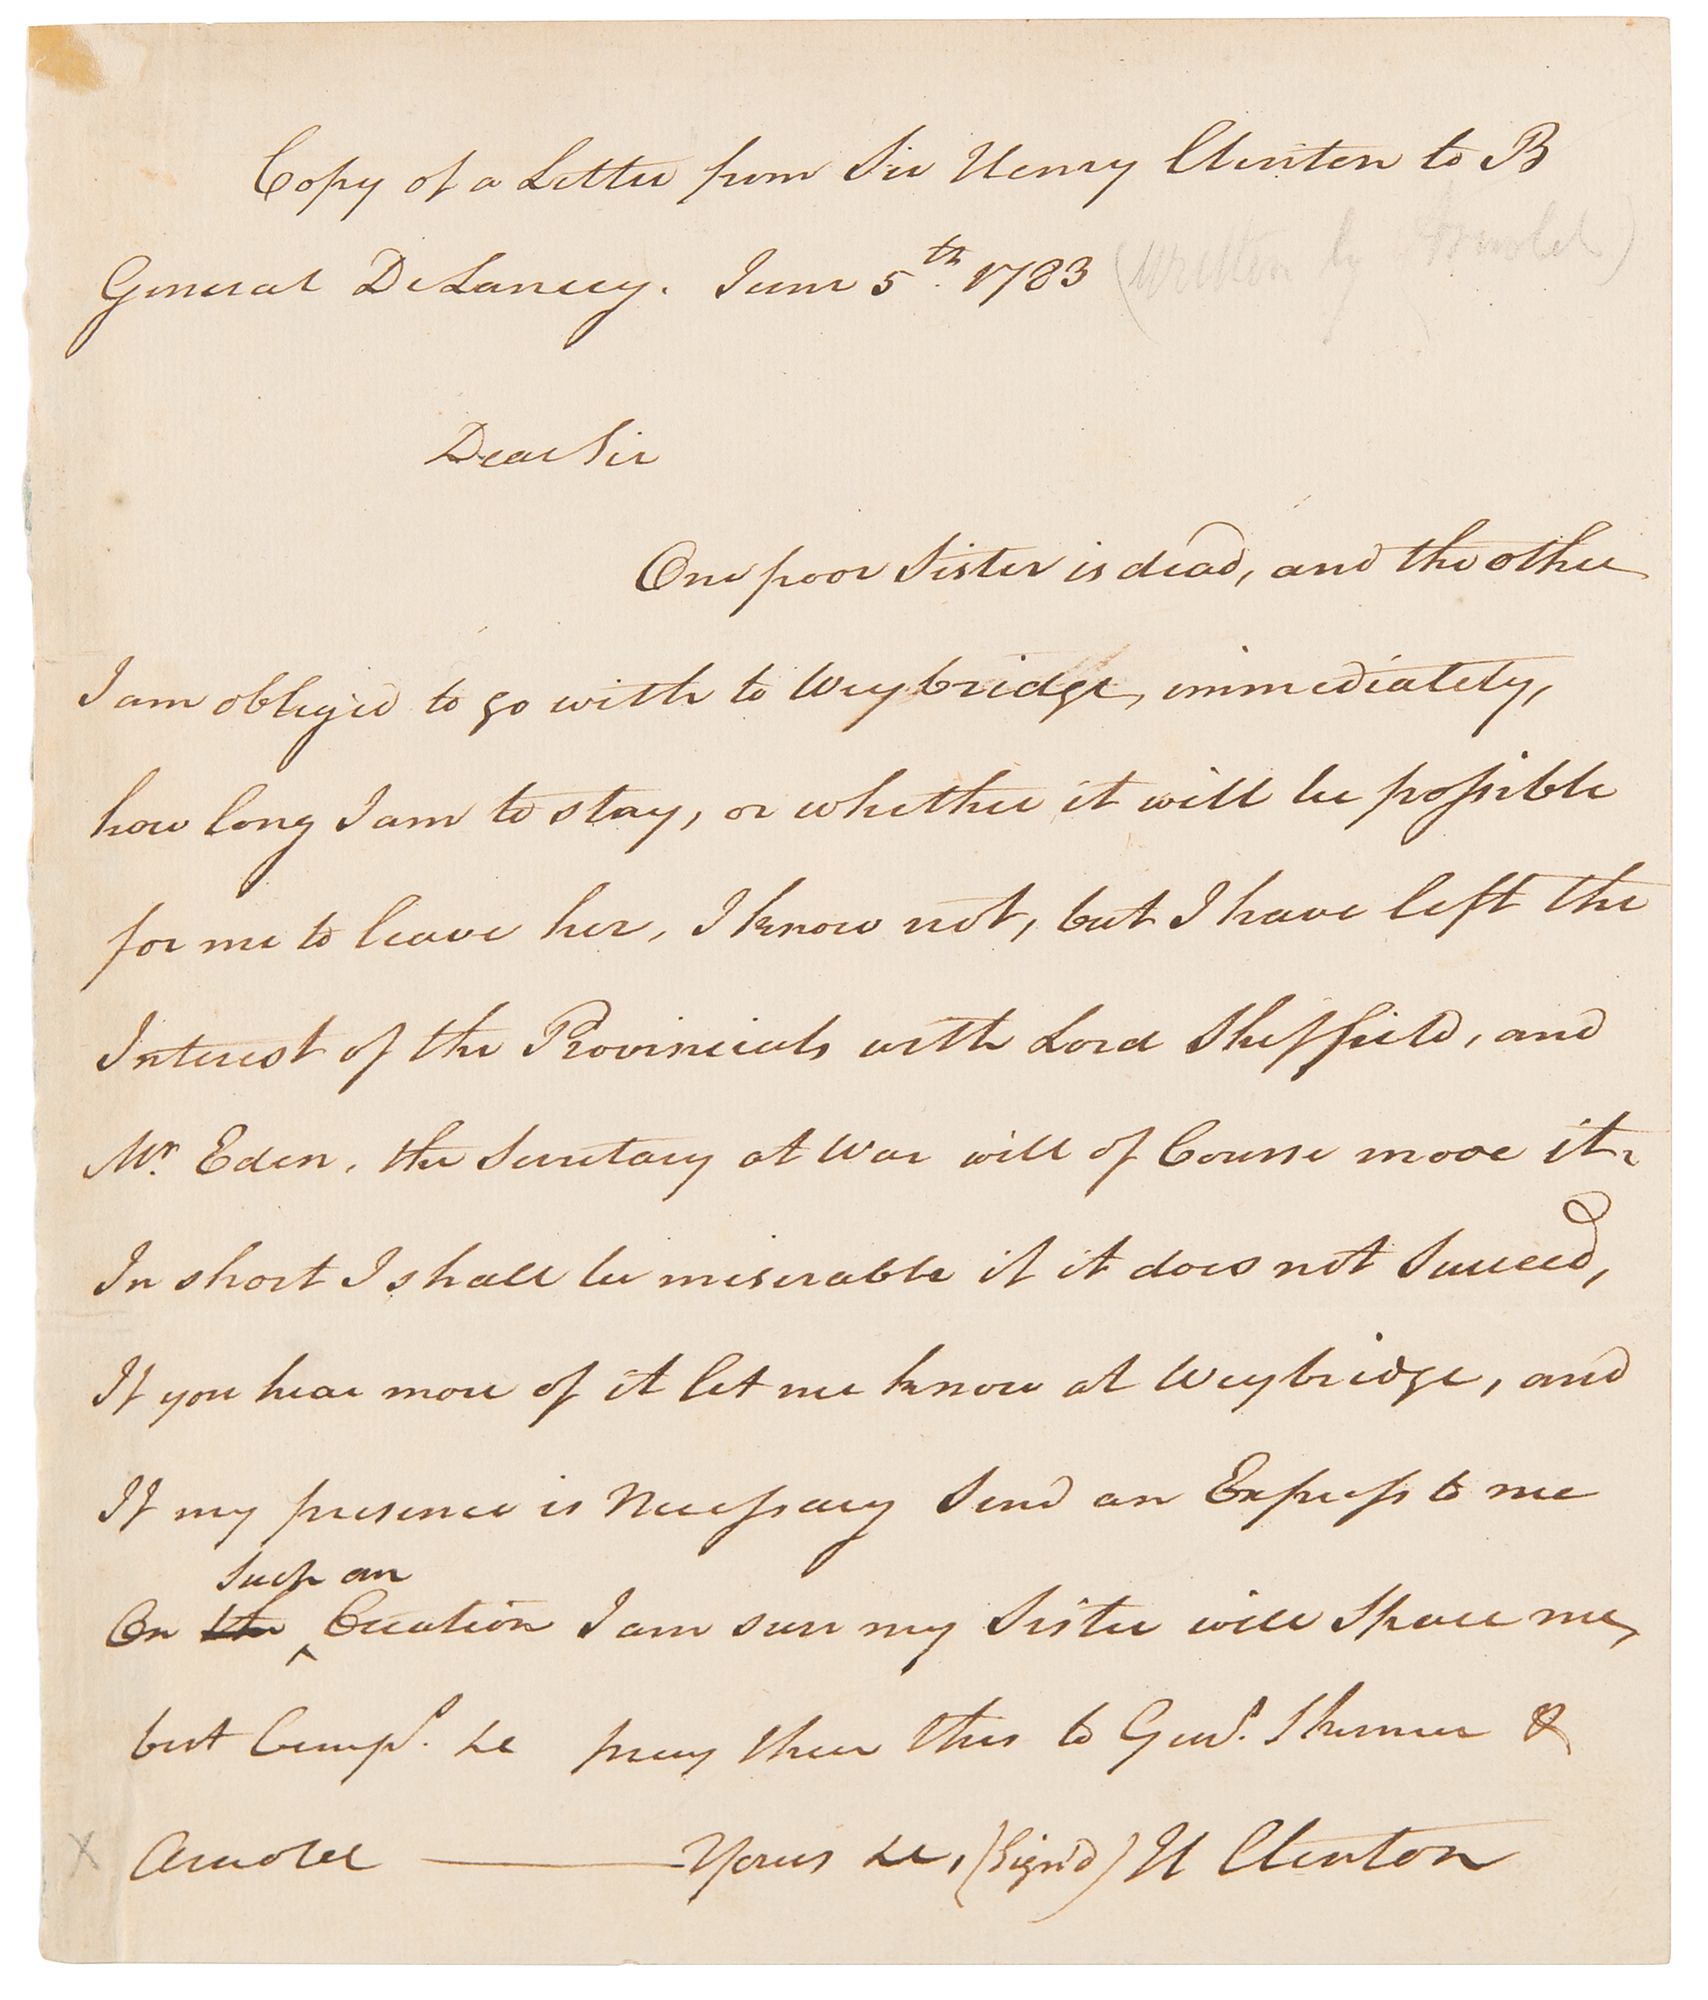 Copy of a Letter from Sir Henry Clinton to B
General DeLancey. June 5th. 1783 (Written by Arnold)
Dear Sir
One poor Sister is dead, and the other
I am obliged to go with to Weybridge, immediately,
how long I am to stay, or whether it will be possible
for me to leave her, I know not, but I have left the
Interest of the Provincials with Lord Sheffield, and
Mr. Eden, the Secretary at War will of Course move it.
In short I shall be miserable if it does not Succeed,
If you hear more of it let me know at Weybridge, and
If my presence is Necessary Send an Express to me
Such an
On the ^ Occation I am sure my Sister will Spare me,
but Comps. &c pray shew this to Genl. Skinner &
X Arnold — Yours &c, (Sign'd) H Clinton